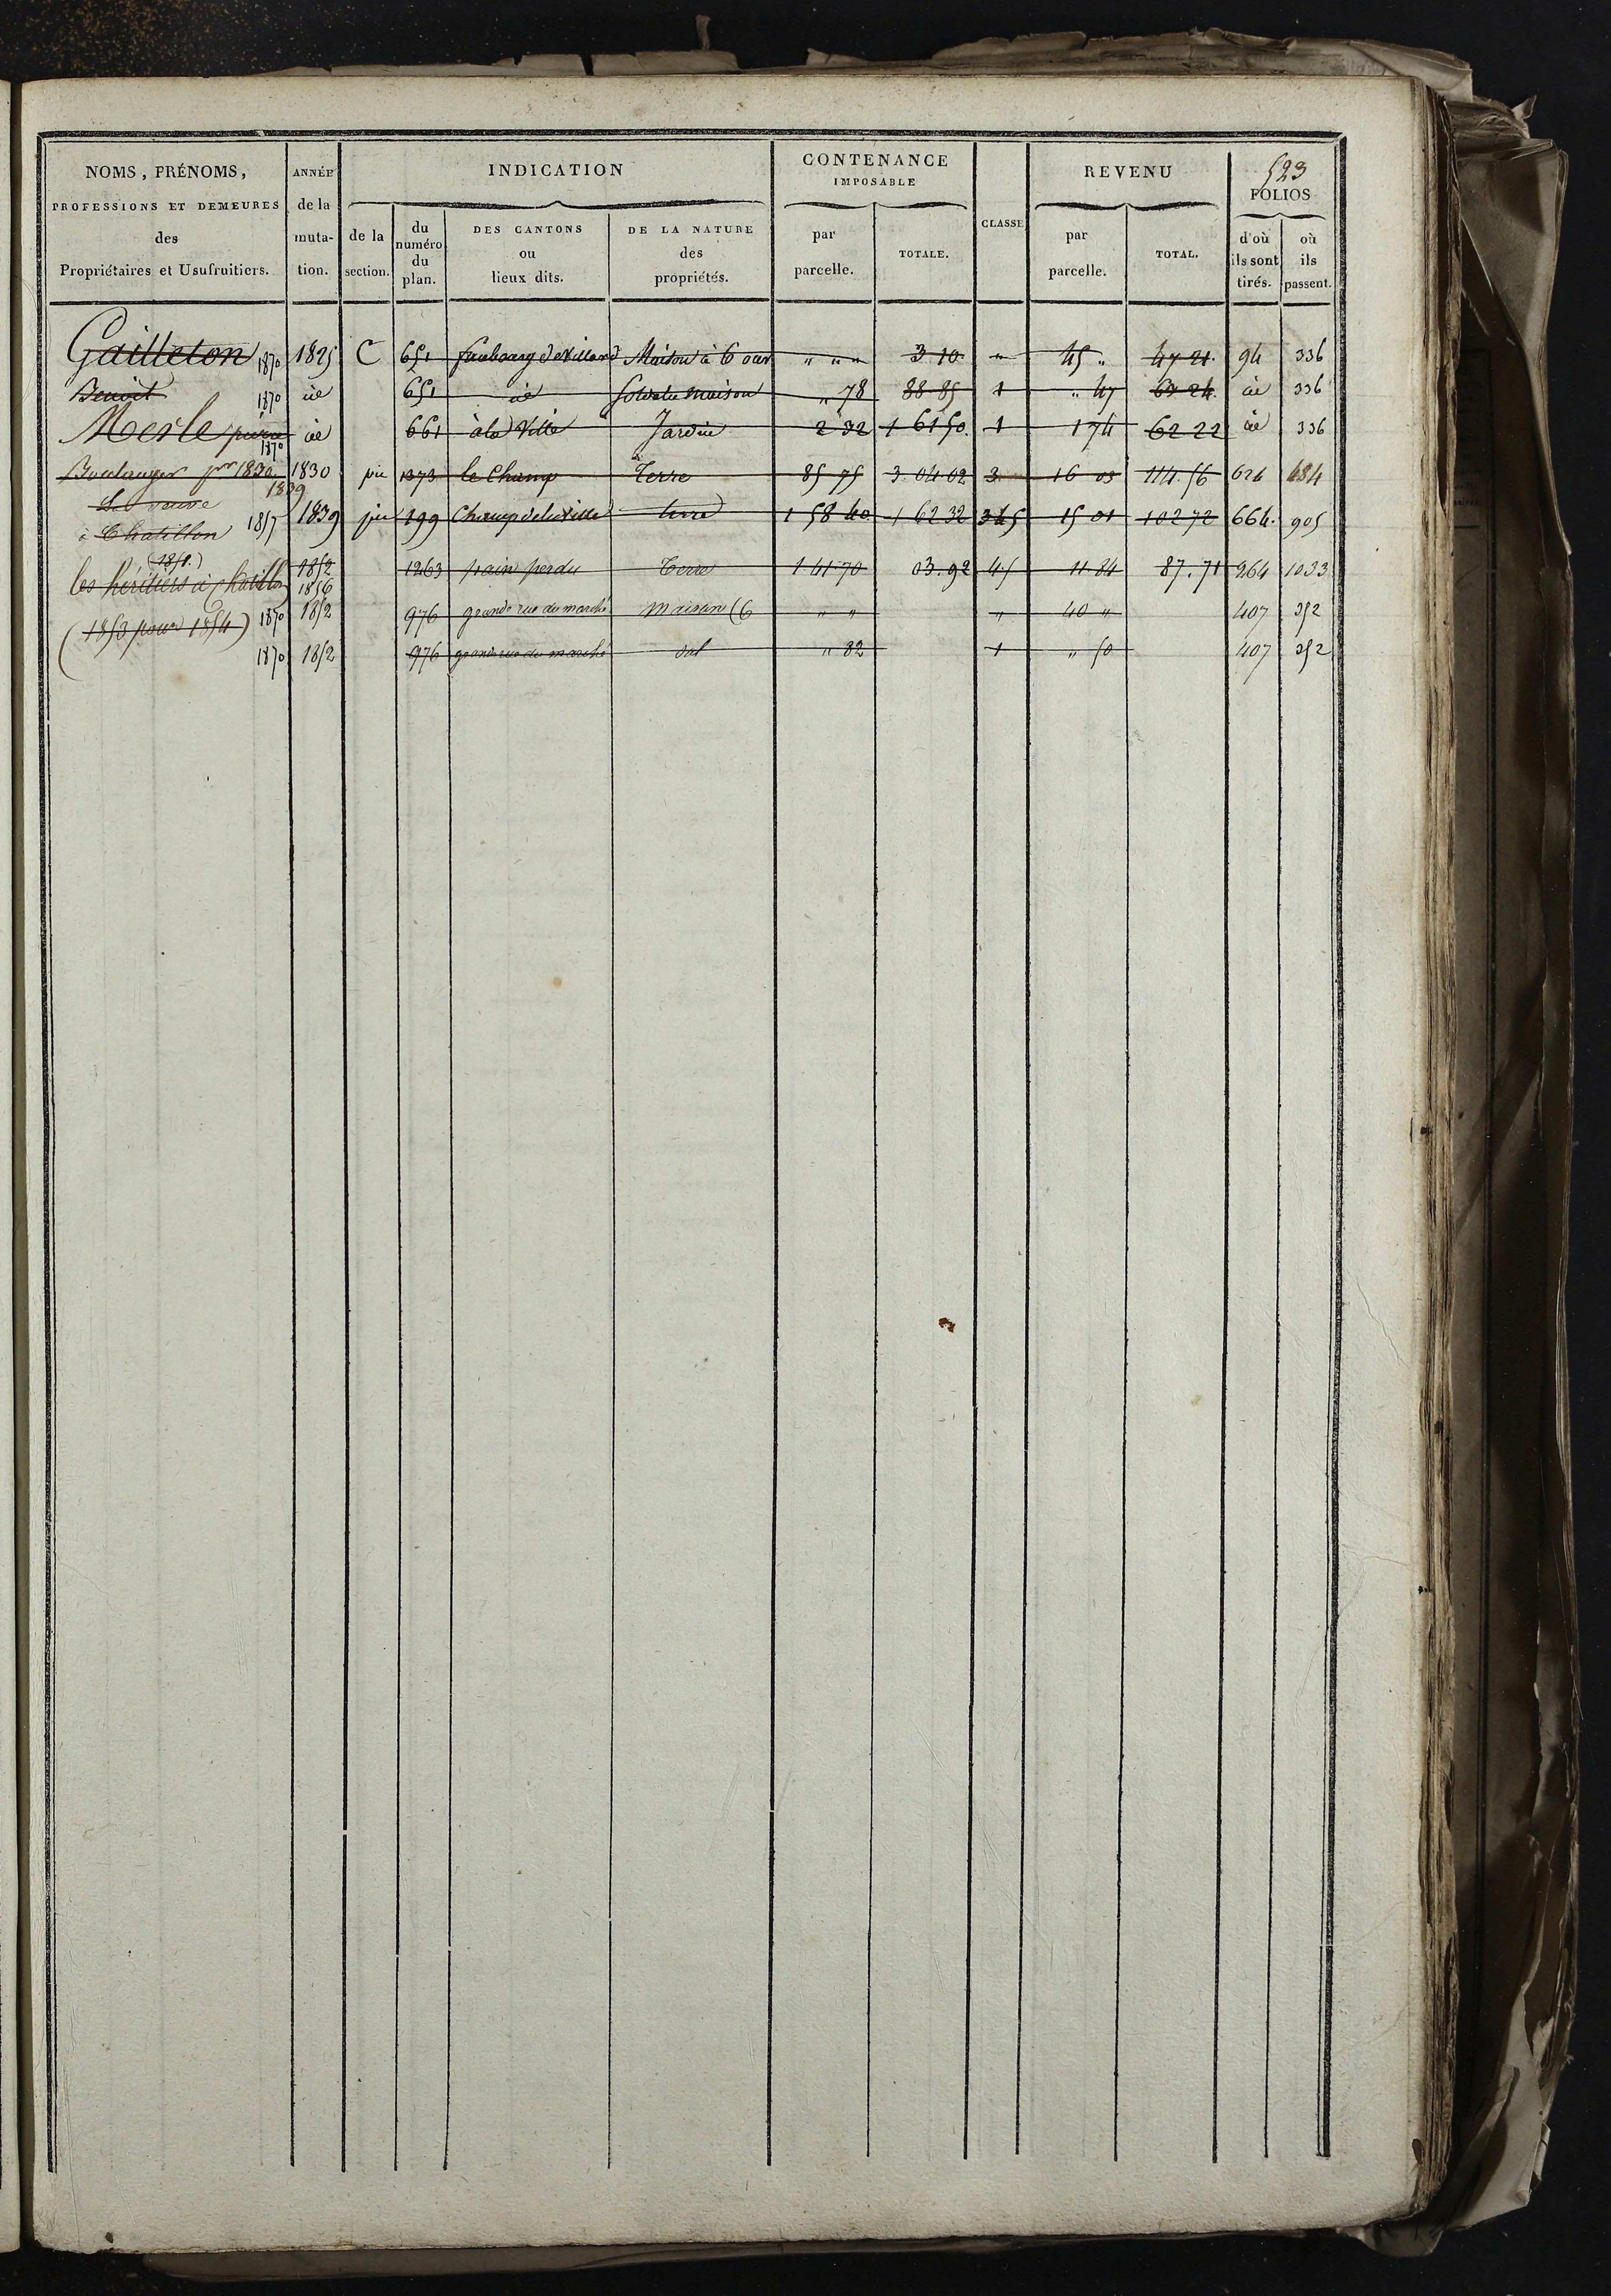 523
NOMS, PRÉNOMS, PROFESSIONS ET DEMEURES des Propriétaires et Usufruitiers.
ANNÉE de la muta- tion.
INDICATION
de la section.
du numéro du plan.
DES CANTONS ou lieux dits.
DE LA NATURE des propriétés.
CONTENANCE IMPOSABLE
par parcelle.
TOTALE.
CLASSE
REVENU
par parcelle.
TOTAL.
FOLIOS
d'où ils sont tirés.
où ils passent.
Gailleton 1870 1825 C 651 faubourg de Villard Maison à 6 ouv " " " 3 10 " 45 " 47 21 94 336
Benoit 1870 id 651 id Sol de la maison " 78 88 85 1 " 47 67 24 id 336
Merle pierre 1870 id 661 à la Ville Jardin 2 32 1 61 50 1 1 74 62 22 id 336
Boulanger pr 1830 1830 pie 1373 le Champ Terre 85 75 3 04 02 3 16 03 114.56 624 484
1839
Sa veuve
à Chatillon 1857 1839 pie 199 Champ de la Ville terre 1 58 40 1 62 32 3 4 5 15 01 102 72 664. 905
(1851.)
les heritiers à Chatillon 1852 1856 1263 pain perdu Terre 1 41 70 03.92 4 5 11 84 87.71 964 1033
(1853 pour 1854) 1870 1852 976 grande rue du marché maison (6 " " " 40 " 407 352
1870 1852 976 grande rue du marché sol " 82 1 " 50 407 352